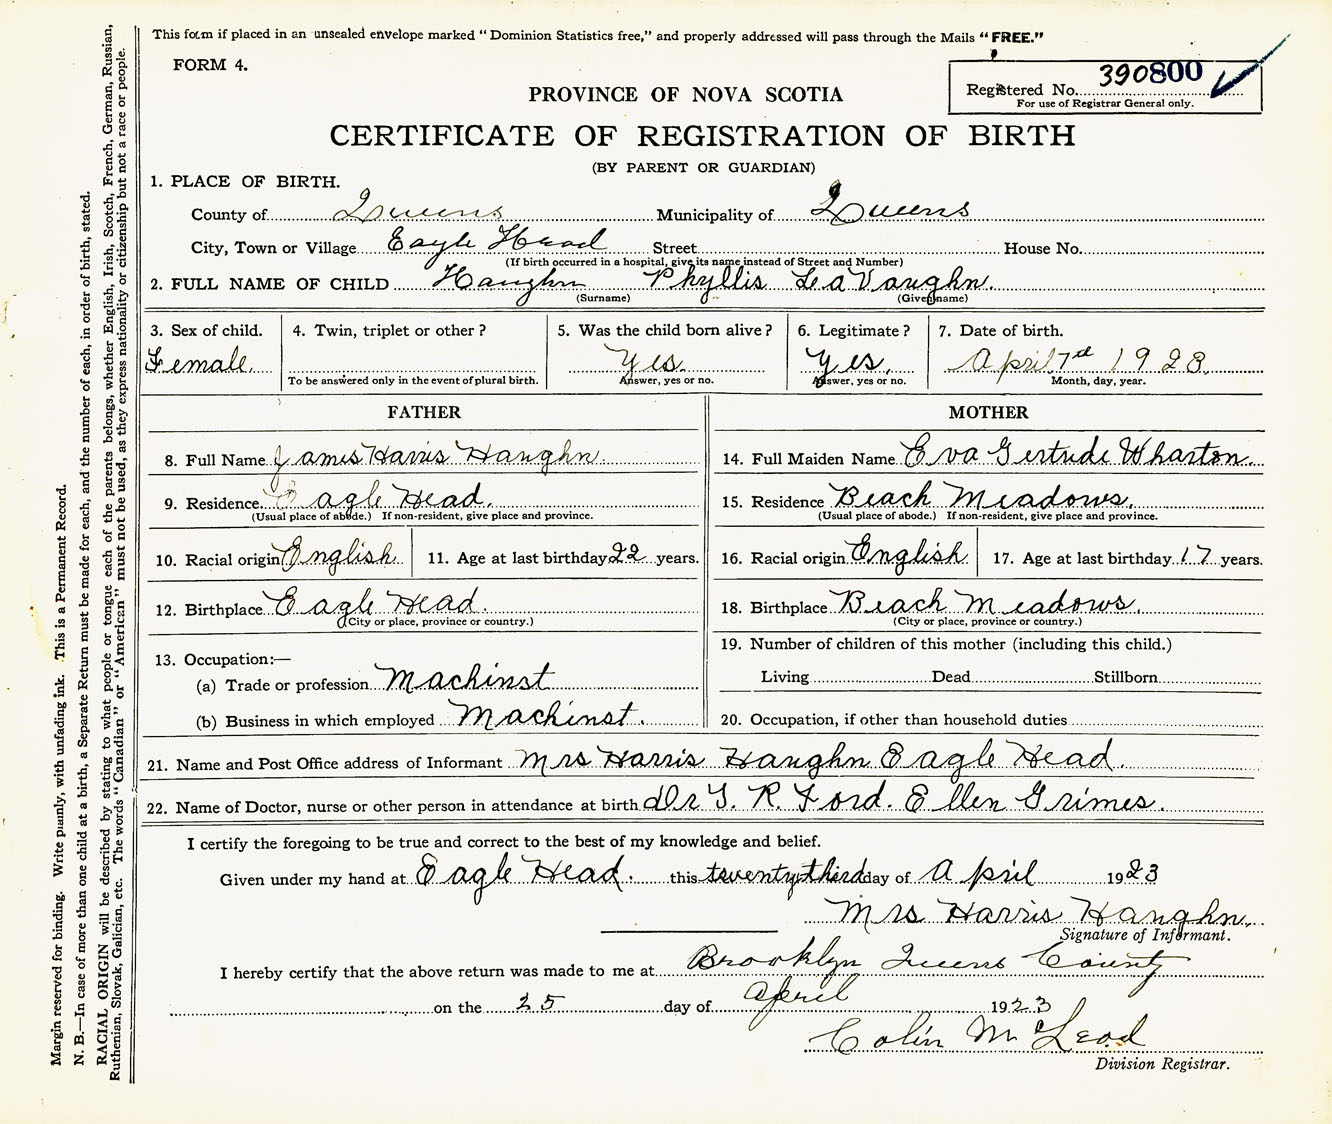 This form if placed in an unsealed envelope marked "Dominion Statistics free," and properly addressed will pass through the Mails "FREE."
FORM 4.
Registered No. 390800
For use of Registrar General only.
PROVINCE OF NOVA SCOTIA
CERTIFICATE OF REGISTRATION OF BIRTH
(BY PARENT OR GUARDIAN)
1. PLACE OF BIRTH.
County of Queens Municipality of Queens
City, Town or Village Eagle Head Street House No.
(If birth occurred in a hospital, give its name instead of Street and Number)
2. FULL NAME OF CHILD Haughn Phyllis LaVaughn.
(Surname) (Given name)
3. Sex of child. 4. Twin, triplet or other? 5. Was the child born alive? 6. Legitimate? 7. Date of birth.
Female. Yes. Yes. April 7th 1923.
To be answered only in the event of plural birth. Answer, yes or no. Answer, yes or no. Month, day, year.
FATHER MOTHER
8. Full Name James Harris Haughn. 14. Full Maiden Name Eva Gertrude Wharton.
9. Residence. Eagle Head. 15. Residence Beach Meadows.
(Usual place of abode.) If non-resident, give place and province. (Usual place of abode.) If non-resident, give place and province.
10. Racial origin English 11. Age at last birthday 22 years. 16. Racial origin English 17. Age at last birthday 17 years.
12. Birthplace Eagle Head. 18. Birthplace Beach Meadows.
(City or place, province or country.) (City or place, province or country.)
13. Occupation:— 19. Number of children of this mother (including this child.)
(a) Trade or profession Machinst Living Dead Stillborn
(b) Business in which employed Machinst. 20. Occupation, if other than household duties
21. Name and Post Office address of Informant Mrs Harris Haughn Eagle Head.
22. Name of Doctor, nurse or other person in attendance at birth Dr T. R. Ford. Ellen Grimes.
I certify the foregoing to be true and correct to the best of my knowledge and belief.
Given under my hand at Eagle Head. this twenty third day of April 1923
Mrs Harris Haughn.
Signature of Informant.
I hereby certify that the above return was made to me at Brooklyn Queens County
on the 25 day of April 1923
Colin McLeod
Division Registrar.
Margin reserved for binding. Write plainly, with unfading ink. This is a Permanent Record.
N. B.—In case of more than one child at a birth, a Separate Return must be made for each, and the number of each, in order of birth, stated.
RACIAL ORIGIN will be described by stating to what people or tongue each of the parents belongs, whether English, Irish, Scotch, French, German, Russian,
Ruthenian, Slovak, Galician, etc. The words "Canadian" or "American" must not be used, as they express nationality or citizenship but not a race or people.